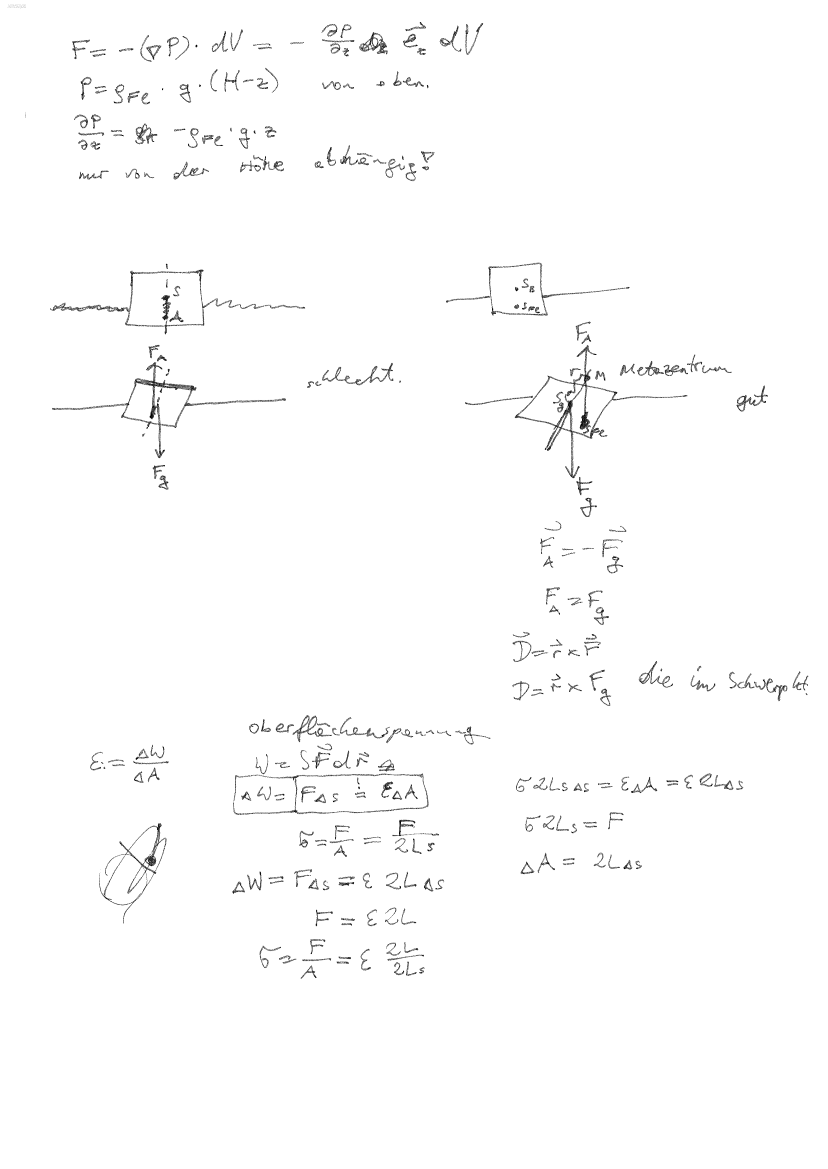 F = -(∇P) · dV = - ∂P/∂z e⃗_z dV
P = ρ_Fe · g · (H-z) von oben.
∂P/∂z = -ρ_Fe · g · z
nur von der Höhe abhängig!
S
A
S_B
S_Fe
F_A
F_g
schlecht.
F_A
r
M Metazentrum
S_g
S_Fe
gut
F_g
F⃗_A = -F⃗_g
F_A = F_g
D⃗ = r⃗ × F⃗
D = r⃗ × F_g die im Schwerpkt.
oberflächenspannung
ε := ΔW/ΔA
W = ∫F⃗dr⃗
ΔW = FΔs = εΔA
σ = F/A = F/2Ls
ΔW = FΔs = ε 2LΔs
F = ε2L
σ = F/A = ε 2L/2Ls
σ2LsΔs = εΔA = ε2LΔs
σ2Ls = F
ΔA = 2LΔs